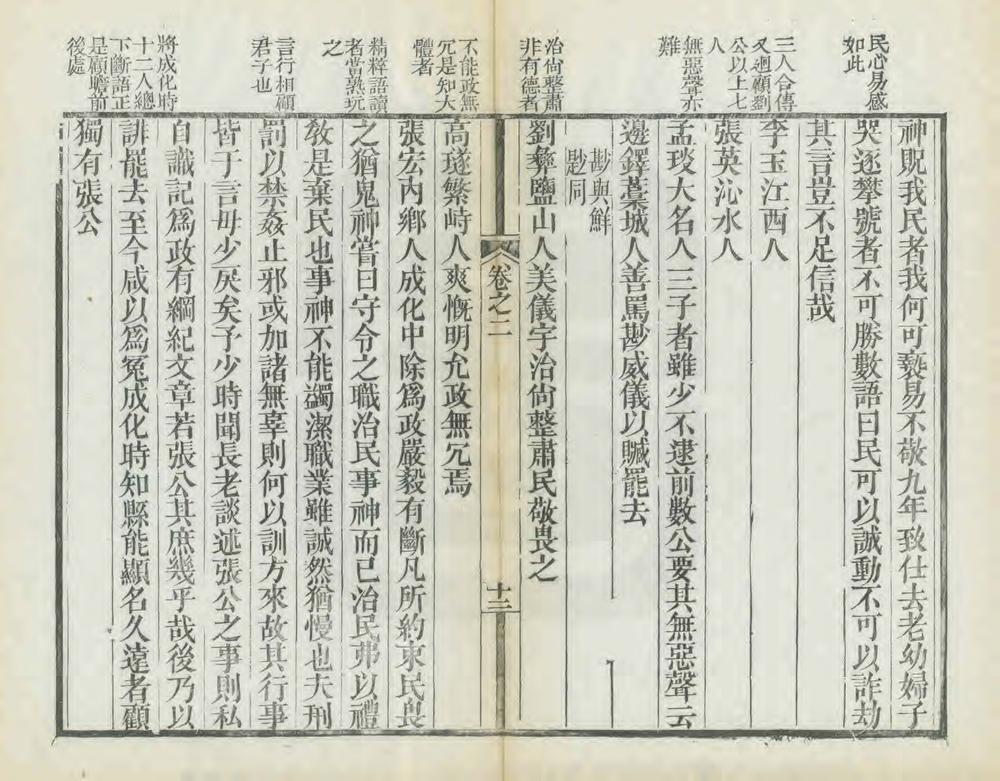 民心易感
如此
三人合傳
又廻顧劉
公以上七
人
無惡聲亦
難
治尙整肅
非有德者
不能政無
冗是知大
體者
精釋語讀
者當熟玩
之
言行相顧
君子也
將成化時
十二人總
下斷語正
是顧瞻前
後處
神貺我民者我何可褻易不敬九年致仕去老幼婦子
哭逐攀號者不可勝數語曰民可以誠動不可以詐劫
其言豈不足信哉
李玉江西人
張英沁水人
孟琰大名人三子者雖少不逮前數公要其無惡聲云
邊鐸藁城人善罵尠威儀以贓罷去
尠與鮮
尟同
劉彝鹽山人美儀宇治尙整肅民敬畏之
卷之二
十二
高璲繁峙人爽慨明允政無冗焉
張宏內鄉人成化中除爲政嚴毅有斷凡所約束民畏
之猶鬼神嘗曰守令之職治民事神而已治民弗以禮
敎是棄民也事神不能蠲潔職業雖誠然猶慢也夫刑
罰以禁姦止邪或加諸無辜則何以訓方來故其行事
皆于言毋少戾矣予少時聞長老談述張公之事則私
自識記爲政有綱紀文章若張公其庶幾乎哉後乃以
誹罷去至今咸以爲冤成化時知縣能顯名久遠者顧
獨有張公